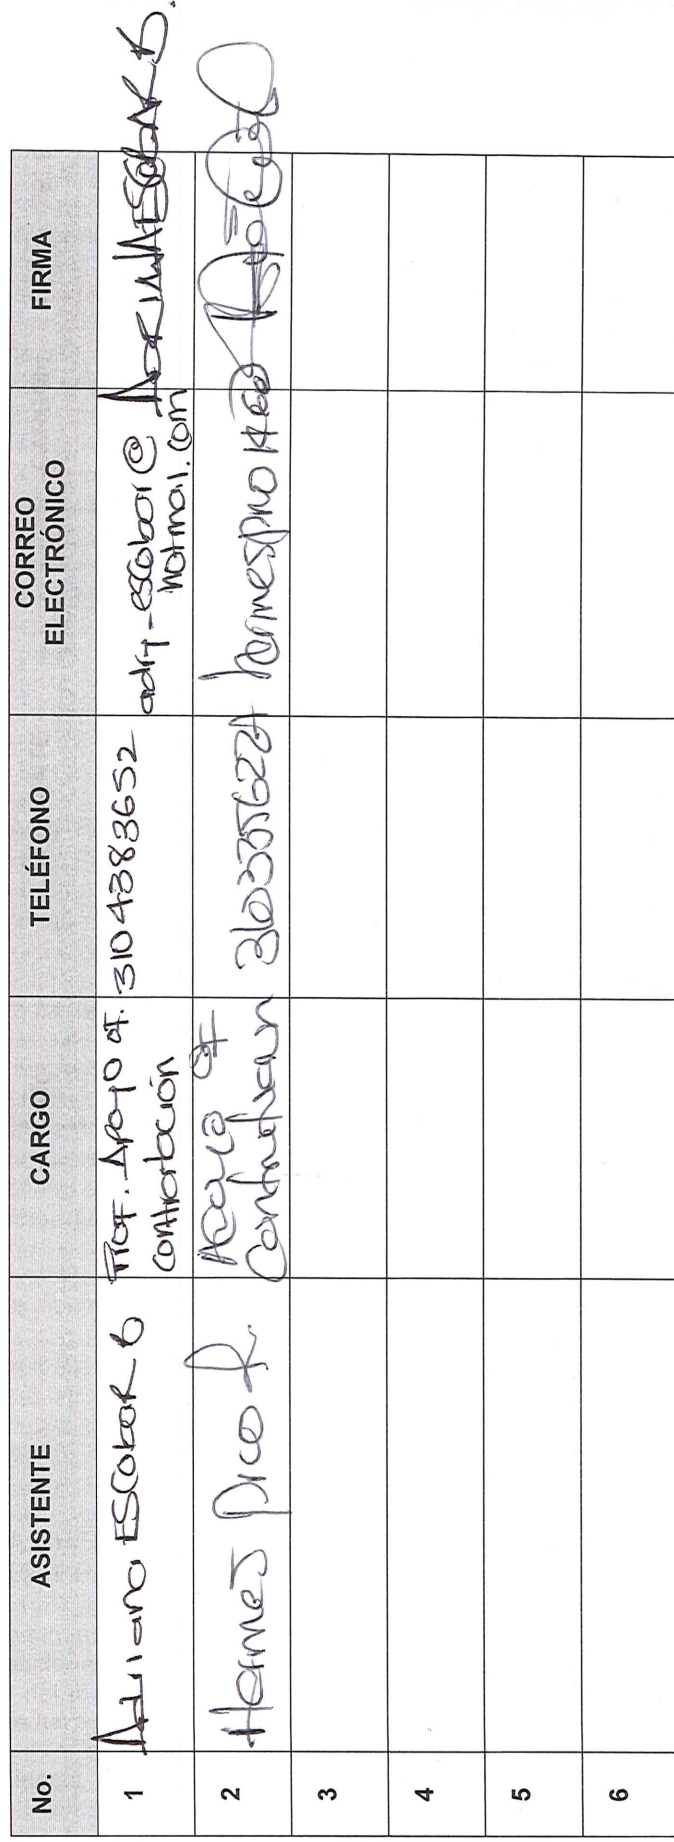 No. ASISTENTE CARGO TELÉFONO CORREO ELECTRÓNICO FIRMA
1 Adriana ESCobaR B Prof. Apoyo of. Contratación 3104383652 adry-escobar@hotmail.com ADRIANAESCobAR B.
2 Hermes pico R. Apoyo of Contratación
3
4
5
6